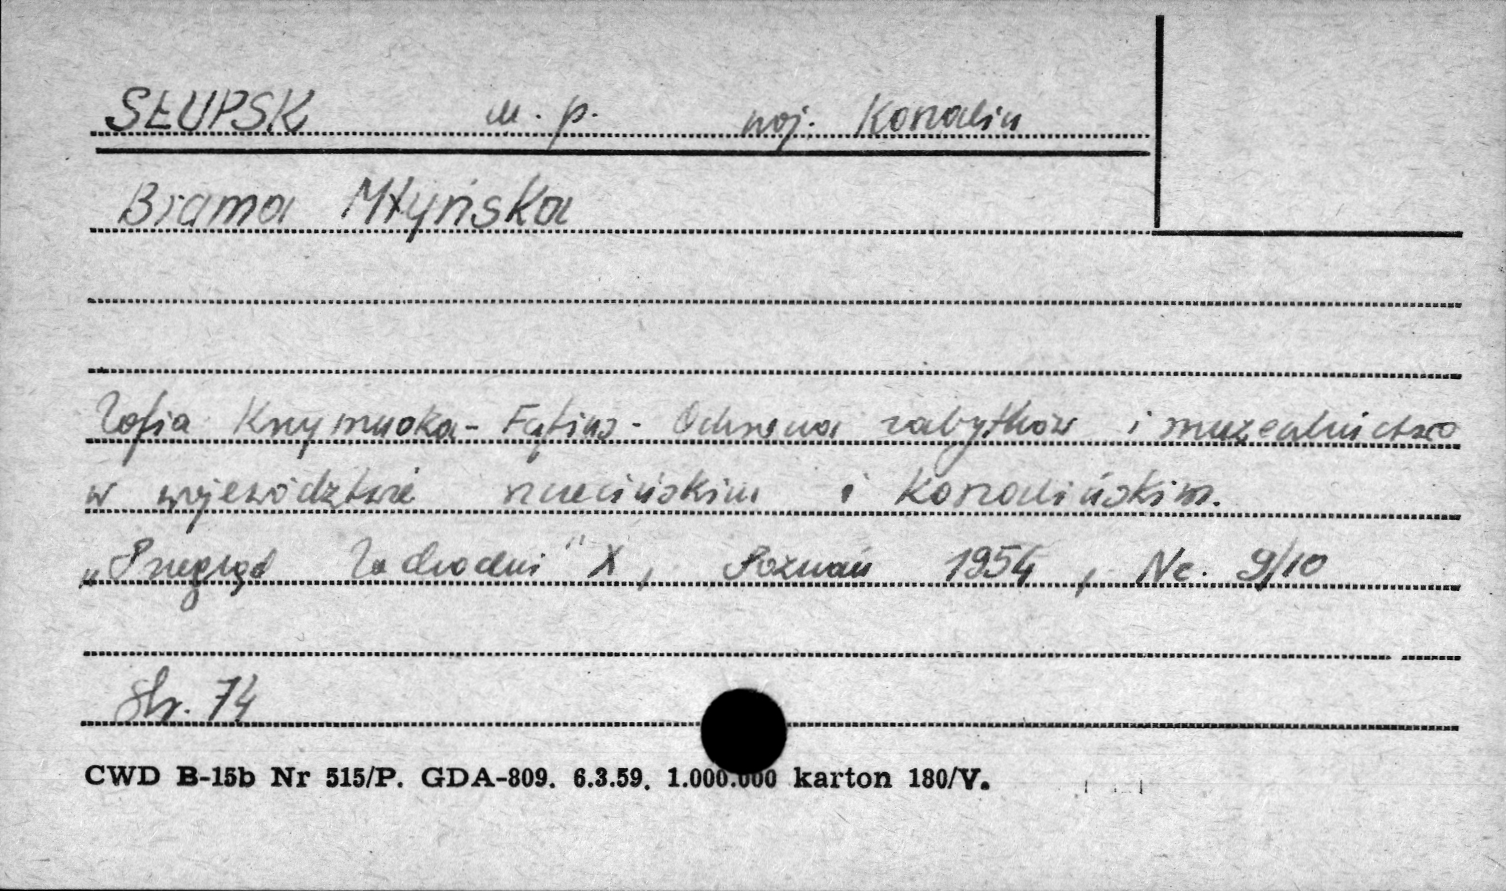 SŁUPSK m. p. woj. Koszalin
Brama Młyńska
Zofia Krzymuska-Fafius - Ochrona zabytków i muzealnictwo
w województwie szczecińskim i koszalińskim.
„Przegląd Zachodni" X, Poznań 1954, Nr. 9/10
Str. 74
CWD B-15b Nr 515/P. GDA-809. 6.3.59. 1.000.000 karton 180/V.